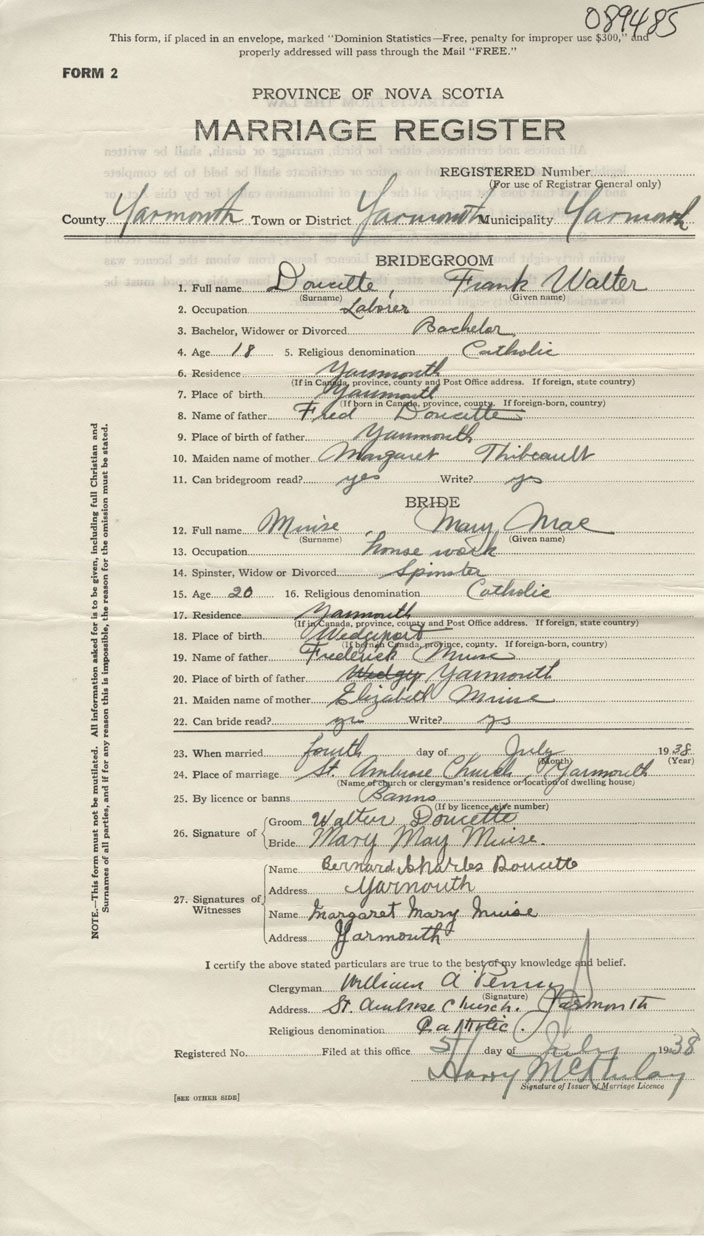 089485
This form, if placed in an envelope, marked "Dominion Statistics—Free, penalty for improper use $300," and
properly addressed will pass through the Mail "FREE."
FORM 2
PROVINCE OF NOVA SCOTIA
MARRIAGE REGISTER
REGISTERED Number
(For use of Registrar General only)
County Yarmouth Town or District Yarmouth Municipality Yarmouth
BRIDEGROOM
1. Full name Doucette, Frank Walter
(Surname) (Given name)
2. Occupation Laborer
3. Bachelor, Widower or Divorced Bachelor
4. Age 18 5. Religious denomination Catholic
6. Residence Yarmouth
(If in Canada, province, county and Post Office address. If foreign, state country)
7. Place of birth Yarmouth
(If born in Canada, province, county. If foreign-born, country)
8. Name of father Fred Doucette
9. Place of birth of father Yarmouth
10. Maiden name of mother Margaret Thibeault
11. Can bridegroom read? yes Write? yes
BRIDE
12. Full name Muise, Mary Mae
(Surname) (Given name)
13. Occupation house work
14. Spinster, Widow or Divorced Spinster
15. Age 20 16. Religious denomination Catholic
17. Residence Yarmouth
(If in Canada, province, county and Post Office address. If foreign, state country)
18. Place of birth Wedgeport
(If born in Canada, province, county. If foreign-born, country)
19. Name of father Frederick Muise
20. Place of birth of father Yarmouth
21. Maiden name of mother Elizabeth Muise
22. Can bride read? yes Write? yes
23. When married fourth day of July 1938
(Month) (Year)
24. Place of marriage St. Ambrose Church, Yarmouth
(Name of church or clergyman's residence or location of dwelling house)
25. By licence or banns Banns
(If by licence, give number)
26. Signature of
Groom Walter Doucette
Bride Mary May Muise.
27. Signatures of Witnesses
Name Bernard Charles Doucette
Address Yarmouth
Name Margaret Mary Muise
Address Yarmouth
I certify the above stated particulars are true to the best of my knowledge and belief.
Clergyman William A Penny
(Signature)
Address St. Ambrose Church. Yarmouth
Religious denomination Catholic.
Registered No. Filed at this office 5 day of July 1938
Harry
Signature of Issuer of Marriage Licence
[SEE OTHER SIDE]
NOTE.—This form must not be mutilated. All information asked for is to be given, including full Christian and
Surnames of all parties, and if for any reason this is impossible, the reason for the omission must be stated.